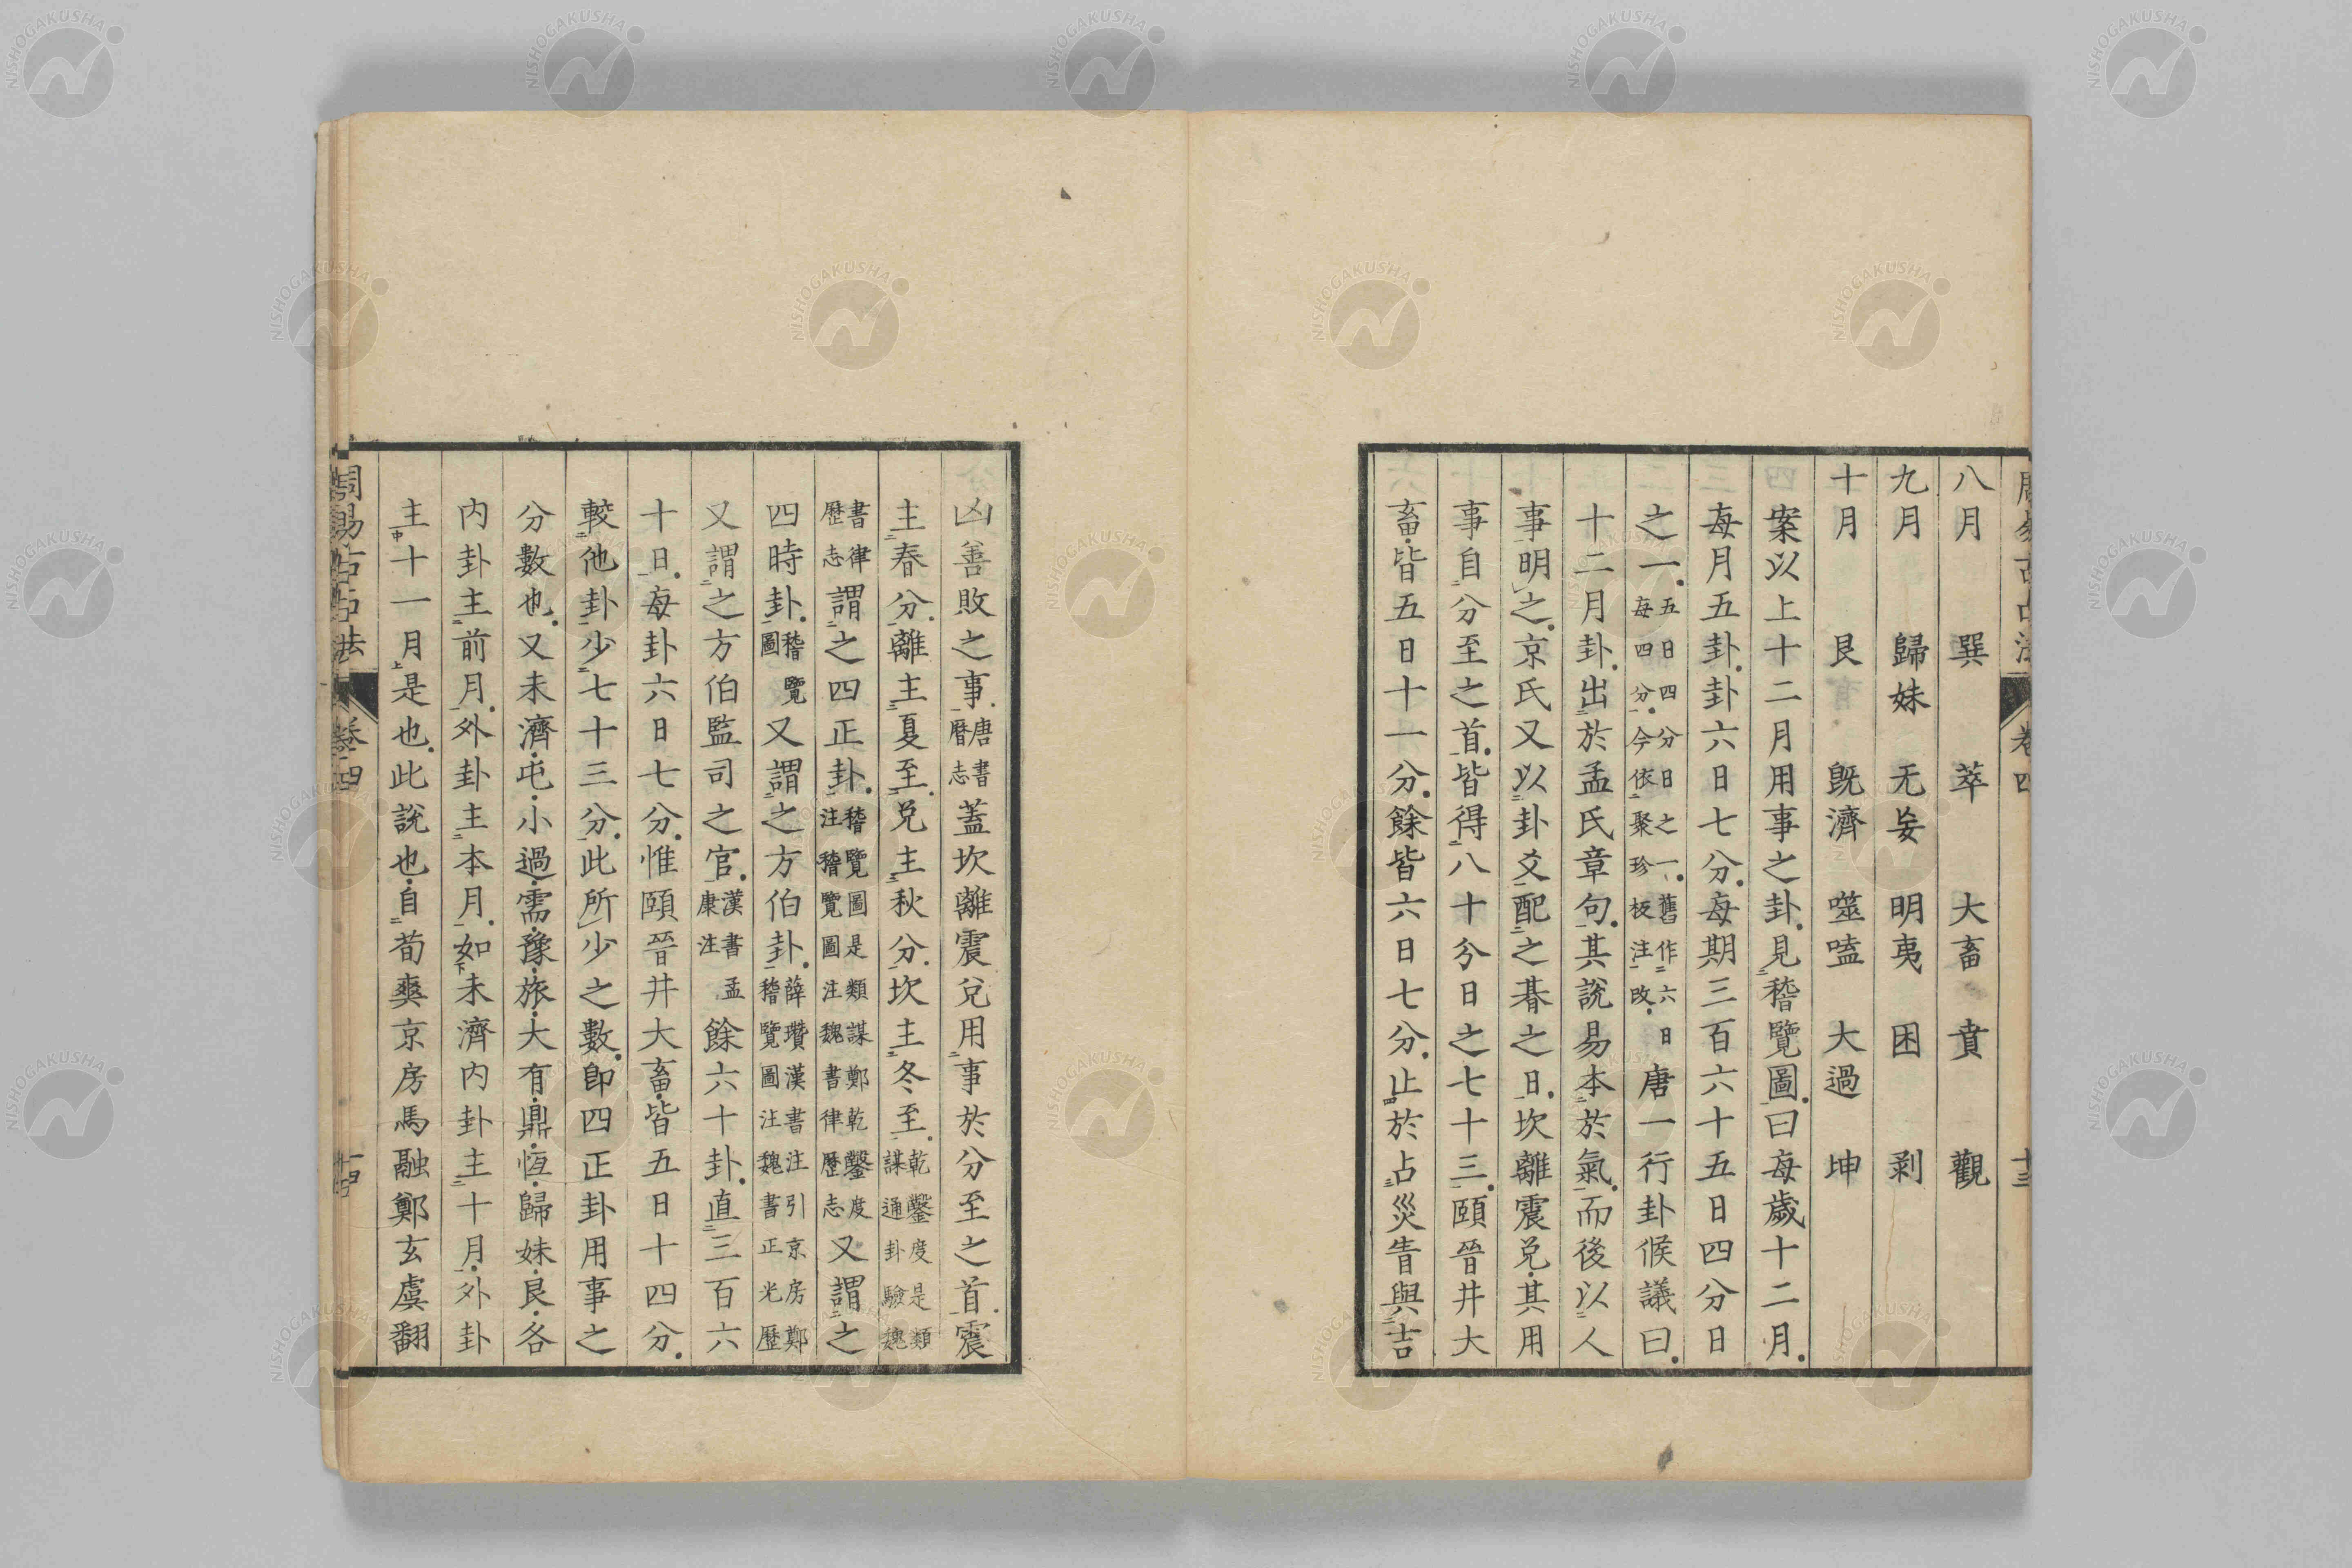 周易古占法 卷四 十三
八月 巽 萃 大畜 賁 觀
九月 歸妹 无妄 明夷 困 剥
十月 艮 旣濟 噬嗑 大過 坤
案以上十二月用事之卦見稽覽圖曰每歲十二月
每月五卦卦六日七分每期三百六十五日四分日
之一五日四分日之一舊作六日每四分今依聚珍板注改唐一行卦候議曰
十二月卦出於孟氏章句其說易本於氣而後以人
事明之京氏又以卦爻配之朞之日坎離震兌其用
事自分至之首皆得八十分日之七十三頤晉井大
畜皆五日十一分餘皆六日七分止於占災眚與吉
凶善敗之事唐書曆志蓋坎離震兌用事於分至之首震
主春分離主夏至兌主秋分坎主冬至乾鑿度是類謀通卦驗魏
書律歷志謂之四正卦稽覽圖是類謀鄭乾鑿度注稽覽圖注魏書律歷志又謂之
四時卦稽覽圖又謂之方伯卦薛瓚漢書注引京房鄭稽覽圖注魏書正光歷
又謂之方伯監司之官漢書孟康注餘六十卦直三百六
十日每卦六日七分惟頤晉井大畜皆五日十四分
較他卦少七十三分此所少之數卽四正卦用事之
分數也又未濟屯小過需豫旅大有鼎恆歸妹艮各
內卦主前月外卦主本月如未濟內卦主十月外卦
主十一月是也此說也自荀爽京房馬融鄭玄虞翻
周易古占法 卷四 十四
NISHOGAKUSHA